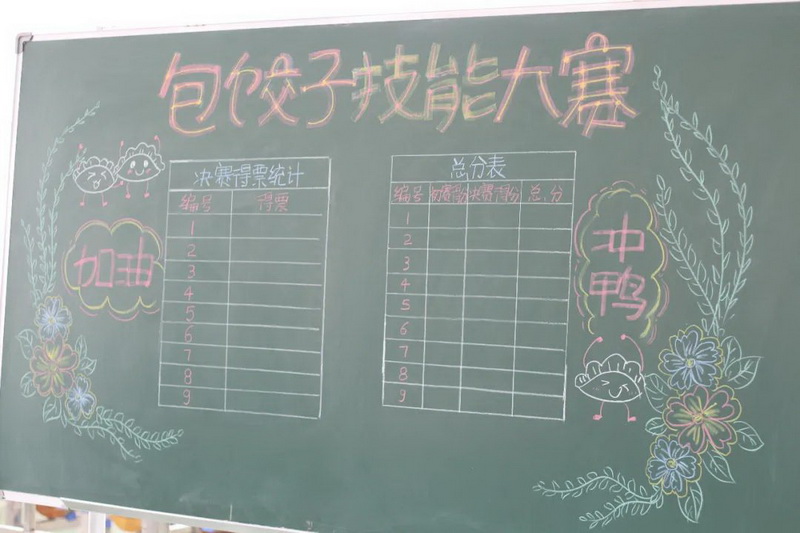 包饺子技能大赛
加油
决赛得票统计
编号 得票
1
2
3
4
5
6
7
8
9
总分表
编号 初赛得份 决赛得份 总分
1
2
3
4
5
6
7
8
9
冲
鸭